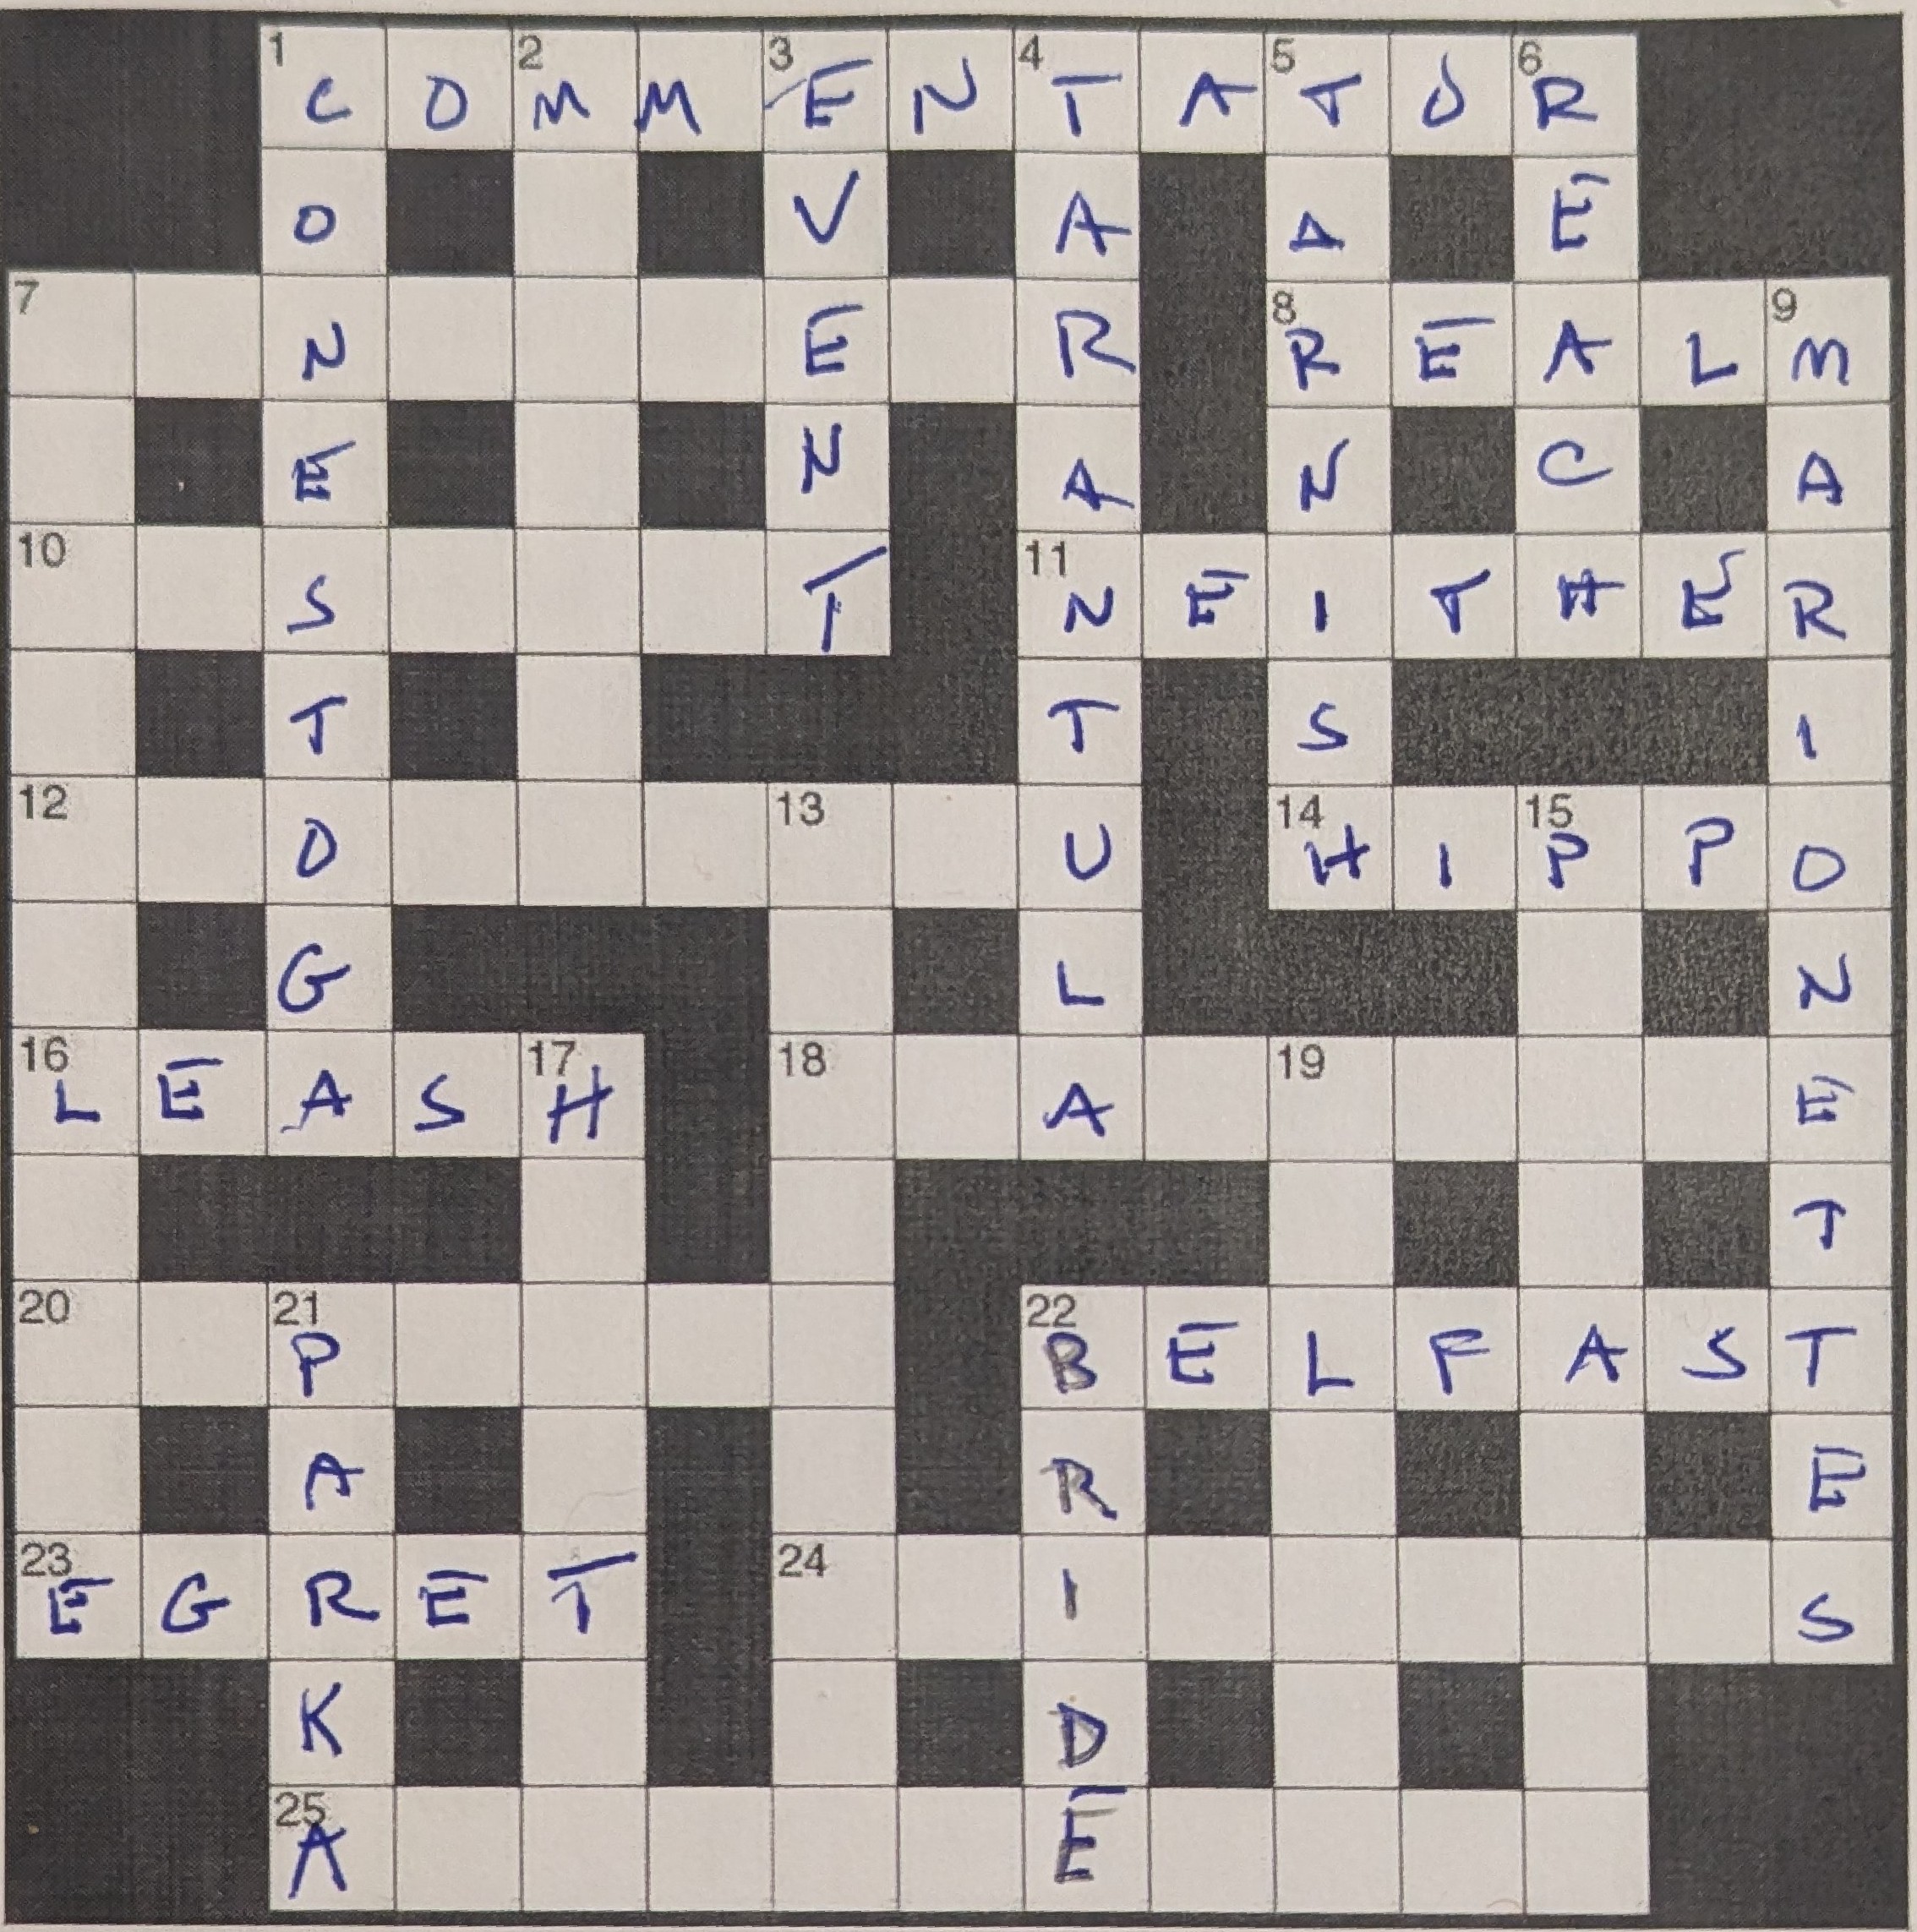 1 C O 2 M M 3 E N 4 T A 5 T O 6 R
O V A A E
7 N E R 8 R E A L 9 M
E N A N C A
10 S T 11 N E I T H E R
T T S I
12 O 13 U 14 H I 15 P P O
G L N
16 L E A S 17 H 18 A 19 E
T
20 21 P 22 B E L F A S T
A R E
23 E G R E T 24 I S
K D
25 A E